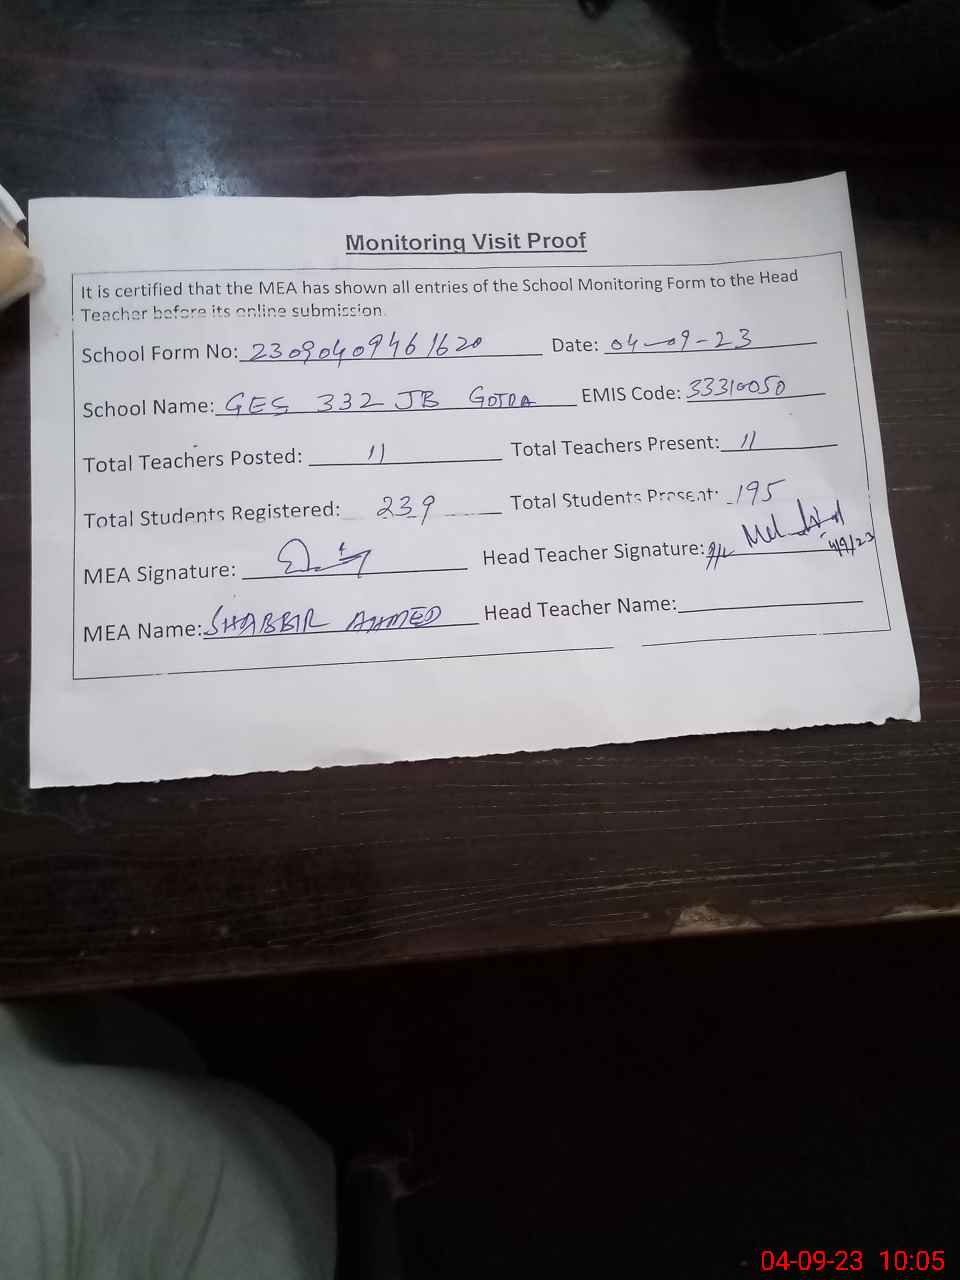 Monitoring Visit Proof
It is certified that the MEA has shown all entries of the School Monitoring Form to the Head
Teacher before its online submission.
School Form No: 23090409461620 Date: 04-09-23
School Name: GES 332 JB GOJRA EMIS Code: 33310050
Total Teachers Posted: 11 Total Teachers Present: 11
Total Students Registered: 239 Total Students Present: 195
MEA Signature: Head Teacher Signature: 4/9/23
MEA Name: SHABBIR AHMED Head Teacher Name:
04-09-23 10:05